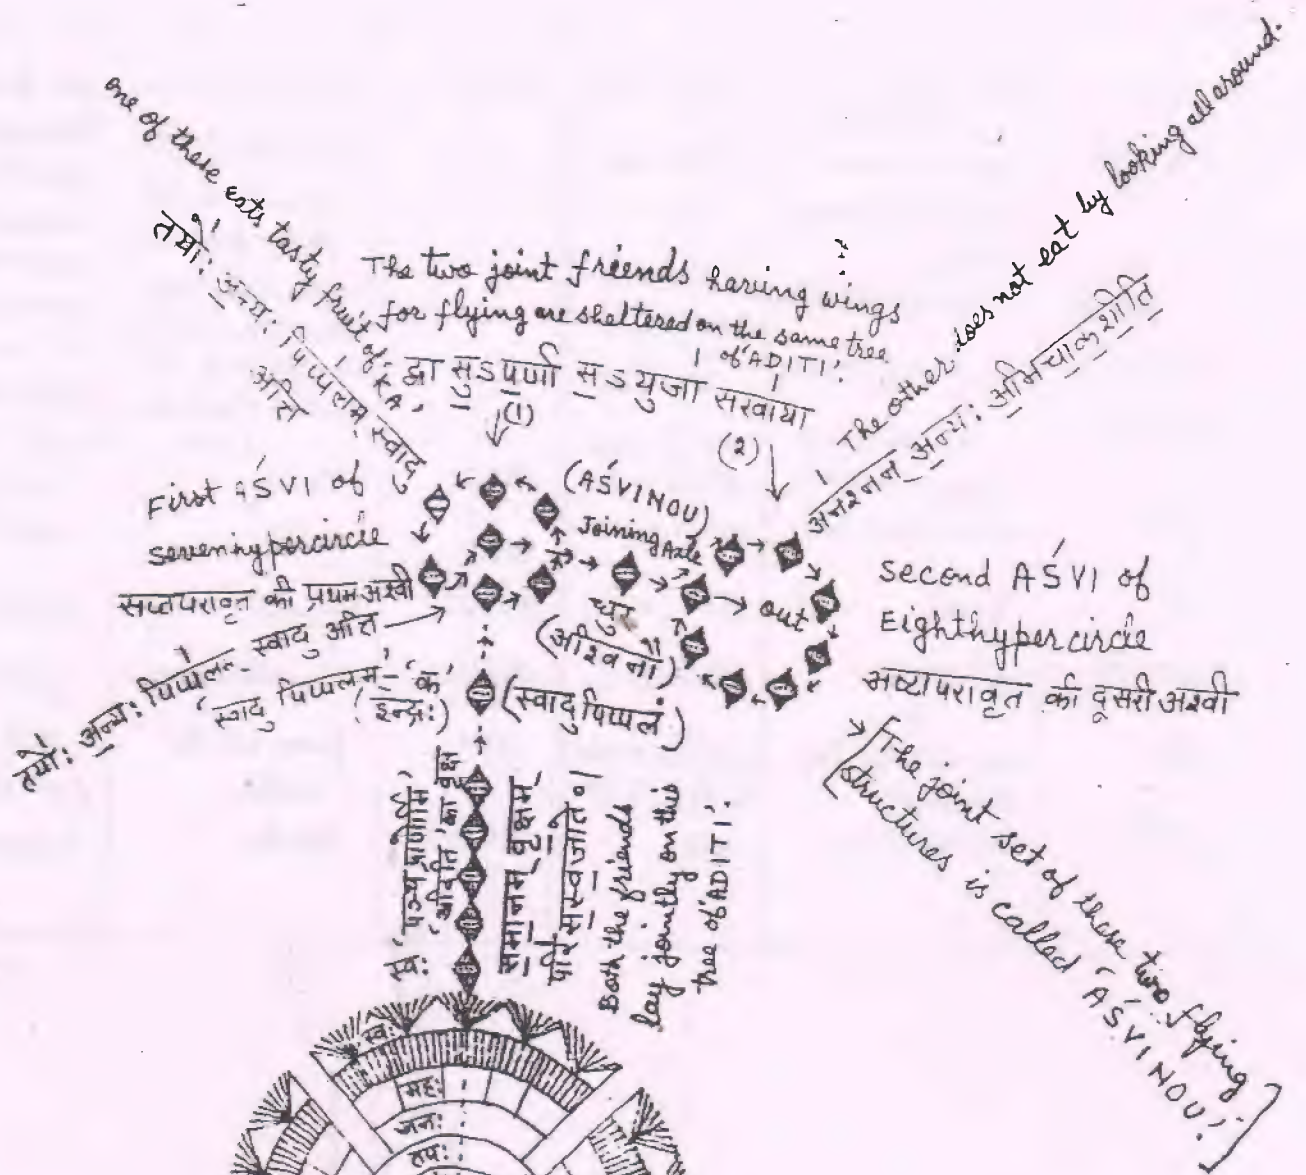 one of these eats tasty fruit of 'KA'
तयो: अन्य: पिप्पलम् स्वादु
अत्ति
The two joint friends having wings
for flying are sheltered on the same tree
of 'ADITI'.
द्वा सुऽपर्णा सऽयुजा सखाया
(1)
(2)
The other does not eat by looking all around.
अनश्नन् अन्य: अभिचाकशीति
First AŚVI of
sevenhypercircle
सप्तपरावृत की प्रथम अश्वी
(AŚVINOU)
Joining Axle
धुरा
(अश्विनौ)
out
Second AŚVI of
Eighthypercircle
अष्टापरावृत की दूसरी अश्वी
तयो: अन्य: पिप्पलम् स्वादु अत्ति
'स्वादु पिप्पलम्' - 'क'
(इन्द्र:)
(स्वादु पिप्पलं)
स्व: 'पञ्च प्राणों में'
'अदिति' का वृक्ष
समानम् वृक्षम्
परि सस्वजाते।
Both the friends
lay jointly on this
tree of 'ADITI'.
[The joint set of these two flying
structures is called 'AŚVINOU'.]
स्व:
मह:
जन:
तप: